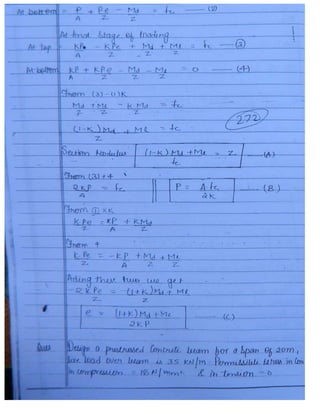 At bottom = P/A + Pe/Z - Md/Z = fc — (2)
At final stage of loading
At top = KP/A - KPe/Z + Md/Z + Ml/Z = fc — (3)
At bottom KP/A + KPe/Z - Md/Z - Ml/Z = 0 — (4)
From (3)-(1)K
Md/Z + Ml/Z - KMd/Z = fc
(272)
(1-K)Md + Ml / Z = fc
Section Modulus (1-K)Md + Ml / fc = Z — (A)
From (3)+4
2KP/A = fc || P = Afc/2K — (B)
From ① xK
KPe/Z = KP/A + KMd/Z
From 4
KPe/Z = -KP/A + Md/Z + Ml/Z
Adding these two we get
2KPe/Z = (1+K)Md + Ml / Z
e = (1+K)Md + Ml / 2KP — (C)
Ques Design a prestressed Concrete beam for a span of 20m,
live load over beam is 35 KN/m. Permissible stress in con
in compression = 18 N/mm² & in tension = 0